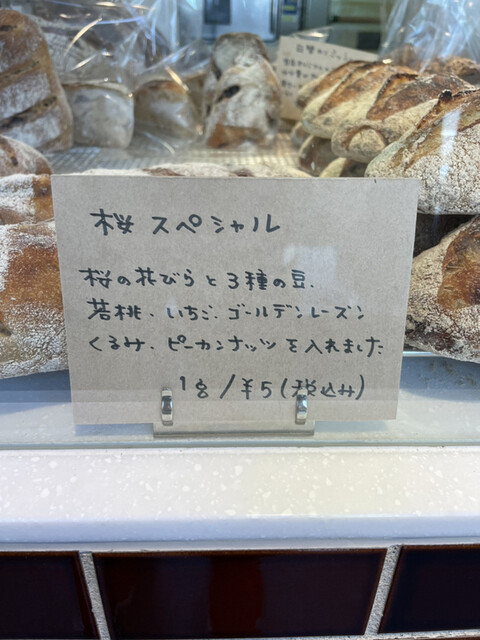 桜 スペシャル
桜の花びらと3種の豆、
若桃、いちご、ゴールデンレーズン
くるみ、ピーカンナッツを入れました
1g/¥5(税込み)